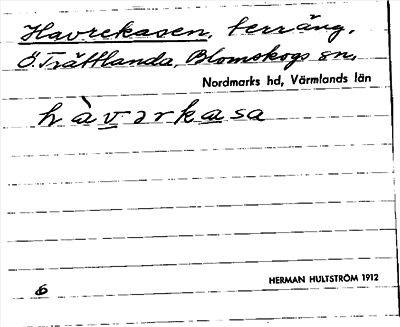 Havrekasen, terräng.
Ö. Trättlanda, Blomskogs sn,
Nordmarks hd, Värmlands län
hàvərkasa
HERMAN HULTSTRÖM 1912
6